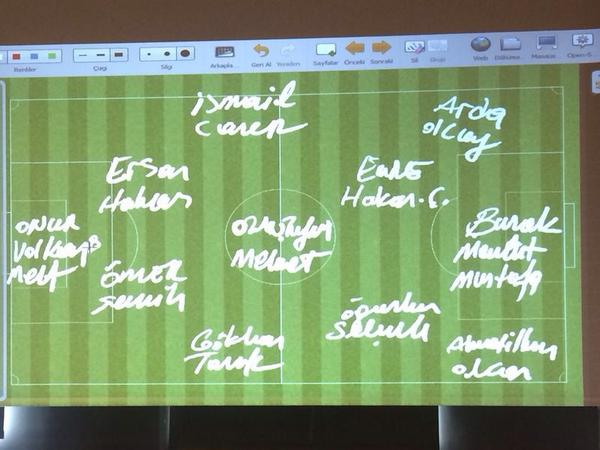 Renkler
Çizgi
Silgi
Arkapla...
Geri Al
Yenileden
Sayfalar
Önceki
Sonraki
Sil
Grup
Web
Masaüs...
Open-S...
ismail
Caner
Arda
olcay
Ersan
Hakan
Emre
Hakan.ç.
onur
Volkan B
Mert
Mehmet
Burak
Mevlüt
Mustafa
ömer
Semih
oğuzhan
Selçuk
Gökhan
Tarık
olcan